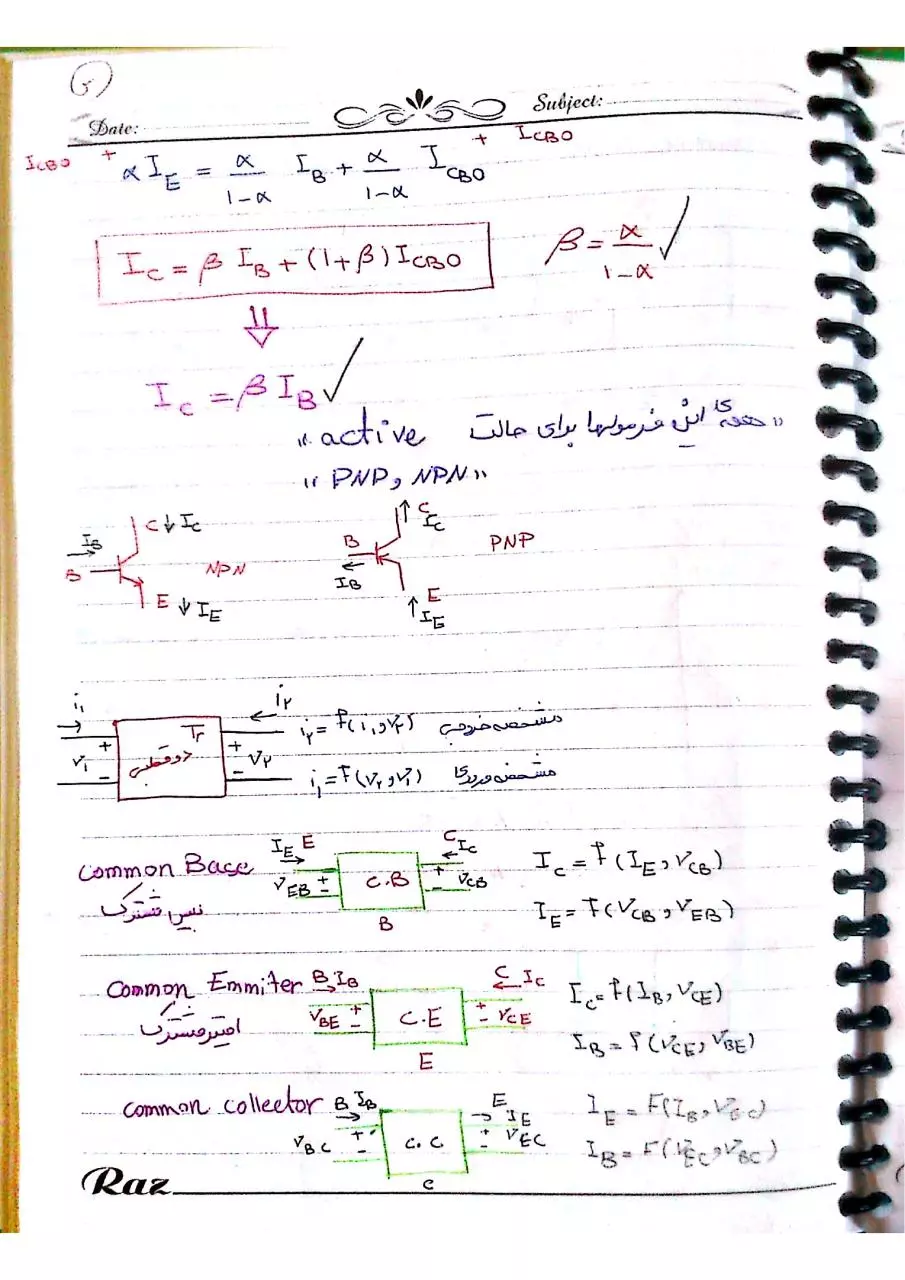 Date:
Subject:
I_CBO + αI_E = α/(1-α) I_B + α/(1-α) I_CBO + I_CBO
I_C = β I_B + (1+β) I_CBO
β = α/(1-α) ✓
⇓
I_C = β I_B ✓
«همه‌ی این فرمولها برای حالت active»
«PNP و NPN»
C ↓ I_C
I_B →
B
NPN
E ↓ I_E
↑ C I_C
B
← I_B
PNP
E
↑ I_E
i₁ →
← i۲
Tr
دوقطبی
+ v₁ -
+ v۲ -
i۲ = f(i₁ و v۲) مشخصه خروجی
i₁ = f(v۲ و v₁) مشخصه ورودی
Common Base
بیس مشترک
I_E E →
C ← I_C
V_EB + -
C.B
+ - V_CB
B
I_C = f(I_E, V_CB)
I_E = f(V_CB, V_EB)
Common Emmiter
امیتر مشترک
B I_B →
C ← I_C
V_BE + -
C.E
+ - V_CE
E
I_C = f(I_B, V_CE)
I_B = f(V_CE, V_BE)
Common collector
B I_B →
E → I_E
V_BC + -
C.C
+ - V_EC
C
I_E = F(I_B, V_EC)
I_B = F(V_EC, V_BC)
Raz